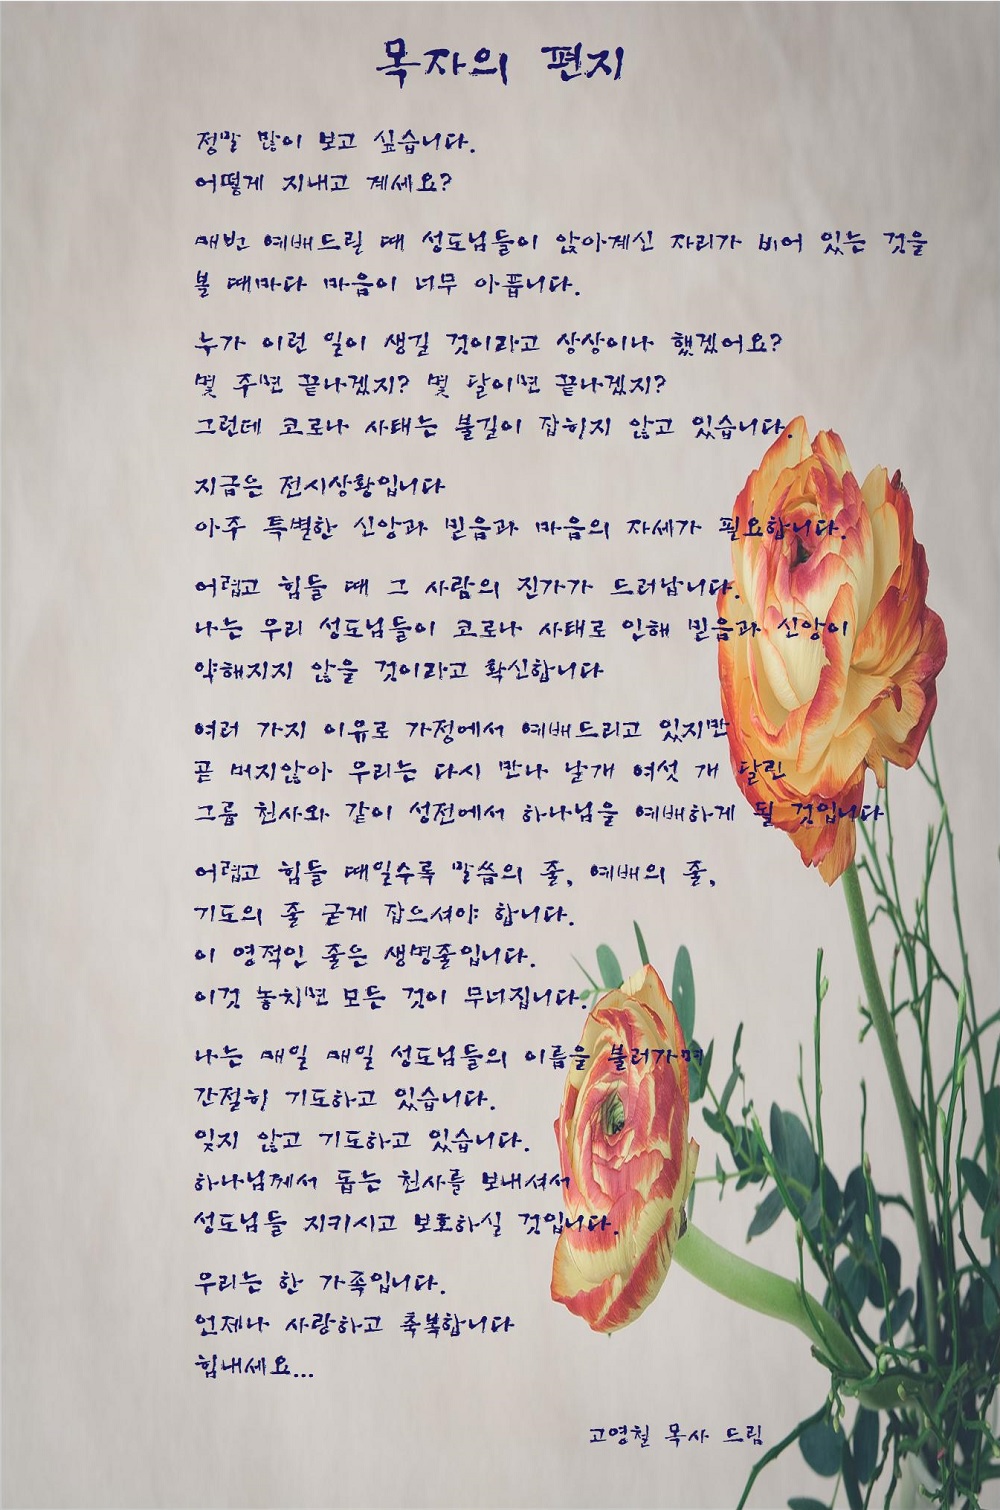 목자의 편지
정말 많이 보고 싶습니다.
어떻게 지내고 계세요?
매번 예배드릴 때 성도님들이 앉아계신 자리가 비어 있는 것을
볼 때마다 마음이 너무 아픕니다.
누가 이런 일이 생길 것이라고 상상이나 했겠어요?
몇 주면 끝나겠지? 몇 달이면 끝나겠지?
그런데 코로나 사태는 불길이 잡히지 않고 있습니다.
지금은 전시상황입니다
아주 특별한 신앙과 믿음과 마음의 자세가 필요합니다.
어렵고 힘들 때 그 사람의 진가가 드러납니다.
나는 우리 성도님들이 코로나 사태로 인해 믿음과 신앙이
약해지지 않을 것이라고 확신합니다
여러 가지 이유로 가정에서 예배드리고 있지만
곧 머지않아 우리는 다시 만나 날개 여섯 개 달린
그룹 천사와 같이 성전에서 하나님을 예배하게 될 것입니다
어렵고 힘들 때일수록 말씀의 줄, 예배의 줄,
기도의 줄 굳게 잡으셔야 합니다.
이 영적인 줄은 생명줄입니다.
이것 놓치면 모든 것이 무너집니다.
나는 매일 매일 성도님들의 이름을 불러가며
간절히 기도하고 있습니다.
잊지 않고 기도하고 있습니다.
하나님께서 돕는 천사를 보내셔서
성도님들 지키시고 보호하실 것입니다.
우리는 한 가족입니다.
언제나 사랑하고 축복합니다
힘내세요...
고영철 목사 드림